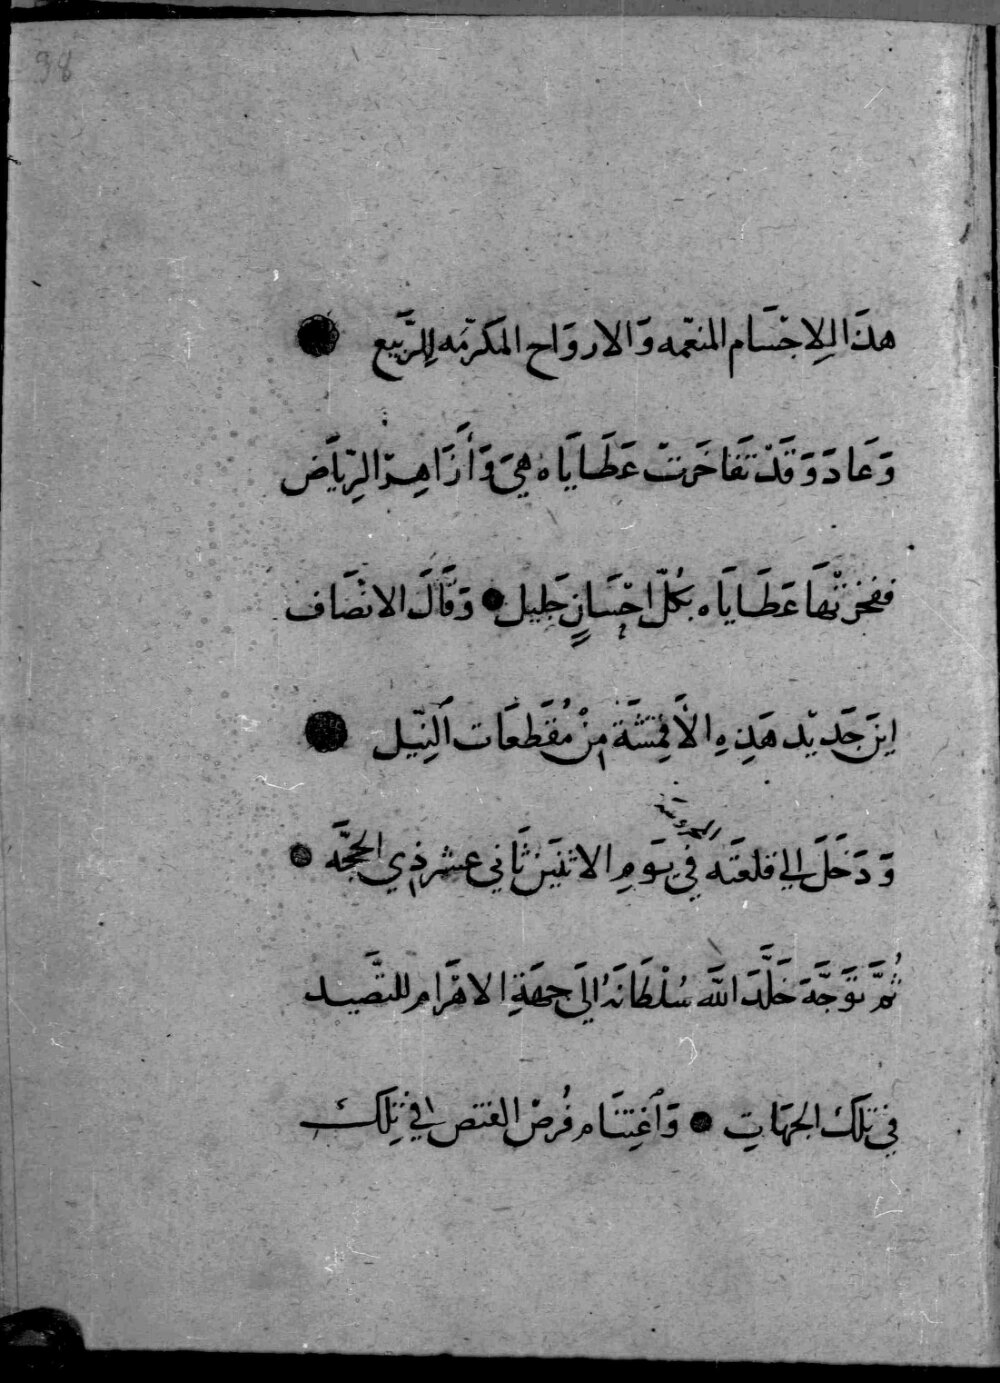 98
هذَا لِلاجْسَام المنعّمه وَالاروَاح المكرّمَه لِلرَّبيع
وَعَادَ وَقَدْ تَفَاخَرتْ عَطَايَاه هِيَ وَأَزَاهِرْ الرِّيَاض
ففخرتْهَا عَطَايَاه بكُلّ احْسَانٍ جَلِيل وَقَالَ الانْصَاف
اينَ جَديْد هَذِهِ الأَقمِشَة مِنْ مُقَطعَات النِّيْل
وَدَخَلَ الي قلعَتَه في يَومِ الاثنَين ثَاني عشر ذي الحجَّه
ثُمَّ تَوَجَّهَ خَلَّدَ اللَّه سُلْطَانَهُ اليَ جهَةِ الاهْرَام للتَصَّيد
في تِلكَ الجهَاتِ وَاغتِنَام فُرصْ القنَص في تِلكَ